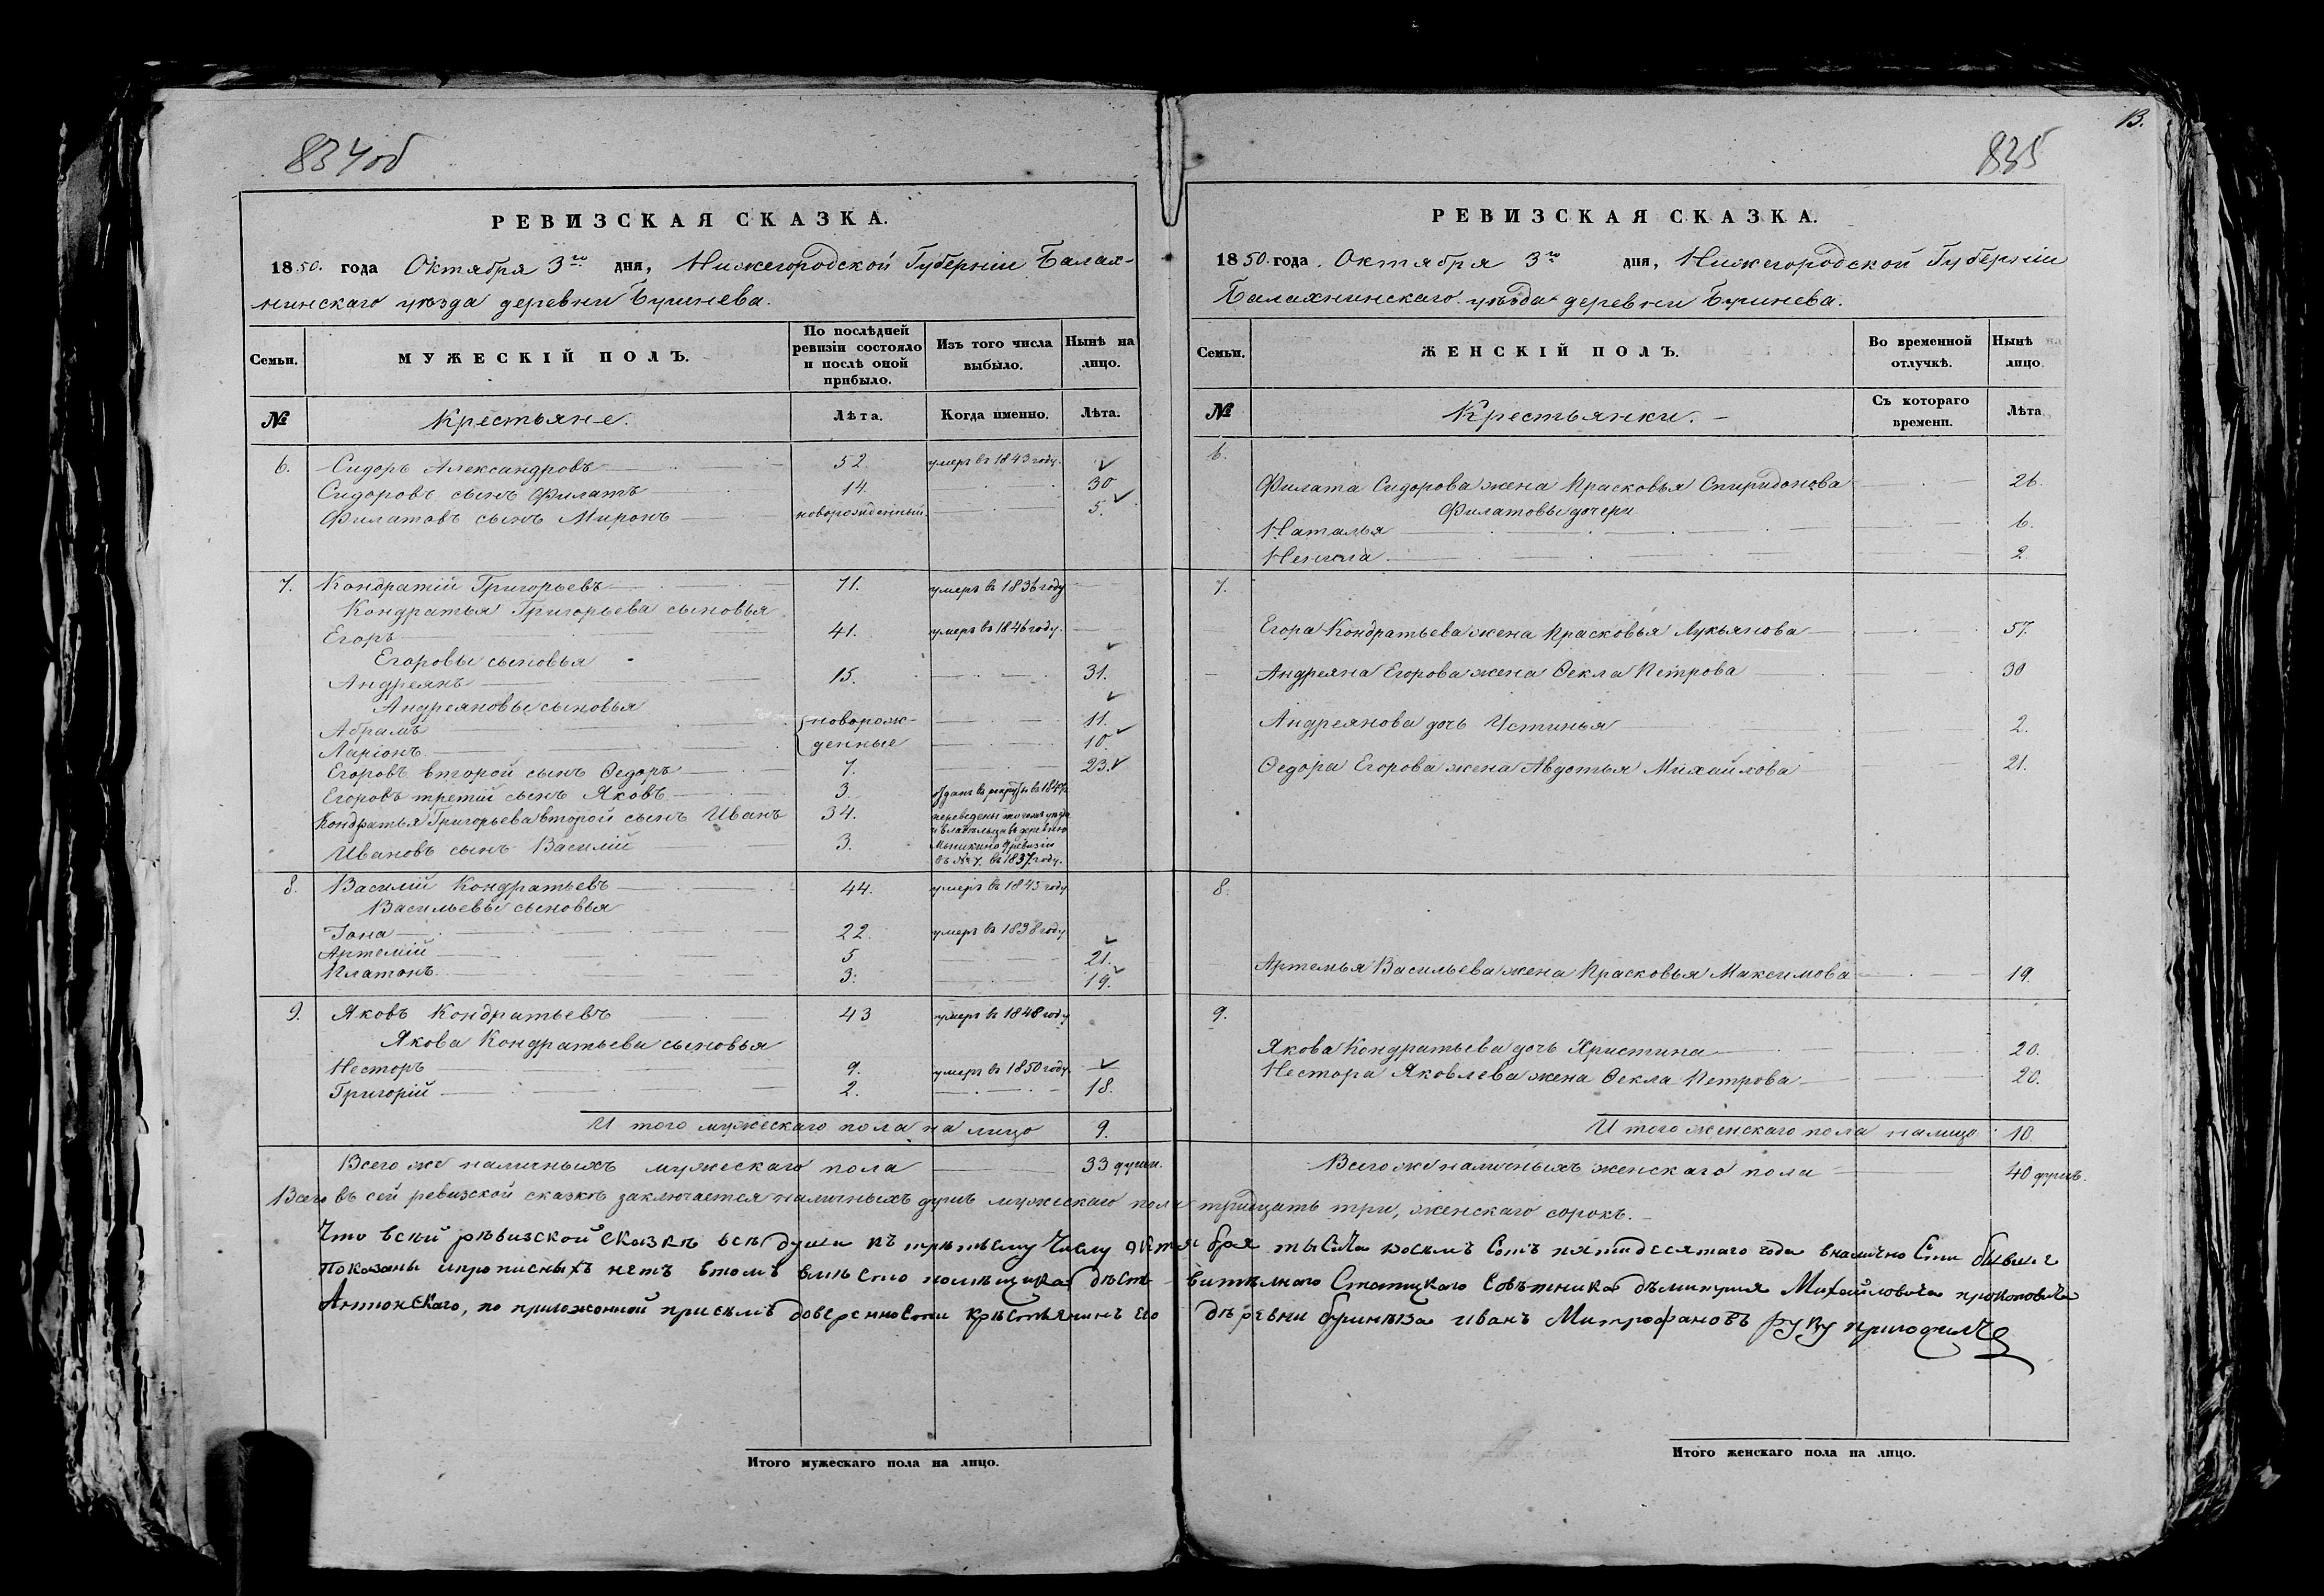 834об
РЕВИЗСКАЯ СКАЗКА.
1850. года Октября 3го дня, Нижегородской Губерніи Балах-
нинскаго уѣзда деревни Бунинева.
Семьи.
МУЖЕСКІЙ ПОЛЪ.
По послѣдней ревизіи состояло и послѣ оной прибыло.
Изъ того числа выбыло.
Нынѣ на лицо.
№
Крестьяне.
Лѣта.
Когда именно.
Лѣта.
6. Сидоръ Александровъ 52. умеръ въ 1843 году.
Сидоровъ сынъ Филатъ 14. 30
Филатовъ сынъ Миронъ новорожденный. 5.
7. Кондратій Григорьевъ 71. умеръ въ 1836 году
Кондратья Григорьева сыновья
Егоръ 41. умеръ въ 1846 году.
Егоровы сыновья
Андреянъ 15. 31.
Андреяновы сыновья
Абрамъ новорож- 11.
Ларіонъ денные 10.
Егоровъ второй сынъ Ѳедоръ 7. 23.
Егоровъ третій сынъ Яковъ 3. отданъ въ рекруты въ
Кондратья Григорьева второй сынъ Иванъ 34. переведены тогожъ уѣзда
и владѣльца въ деревню
Ивановъ сынъ Василій 3. ревизіи
въ № 7. въ 1837. году.
8. Василій Кондратьевъ 44. умеръ въ 1845 году
Васильевы сыновья
Іона 22. умеръ въ 1838 году
Артемій 5 21.
Платонъ 3. 19.
9. Яковъ Кондратьевъ 43 умеръ въ 1848 году
Якова Кондратьева сыновья
Несторъ 9. умеръ въ 1850 году.
Григорій 2. 18.
И того мужескаго пола на лицо 9.
Всего же наличныхъ мужескаго пола 33 души.
Итого мужескаго пола на лицо.
13.
835
РЕВИЗСКАЯ СКАЗКА.
1850. года. Октября 3го дня, Нижегородской Губерніи
Балахнинскаго уѣзда деревни Бунинева.
Семьи.
ЖЕНСКІЙ ПОЛЪ.
Во временной отлучкѣ.
Нынѣ на лицо
№
Крестьянки.
Съ котораго времени.
Лѣта
6.
Филата Сидорова жена Прасковья Спиридонова 26.
Филатовы дочери
Наталья 6.
Ненила 2
7.
Егора Кондратьева жена Прасковья Лукьянова 57.
Андреяна Егорова жена Ѳекла Петрова 30
Андреянова дочь Устинья 2.
Ѳедора Егорова жена Авдотья Михайлова 21.
8.
Артемья Васильева жена Прасковья Максимова 19.
9.
Якова Кондратьева дочь Христина 20.
Нестора Яковлева жена Ѳекла Петрова 20.
И того женскаго пола налицо 10.
Всего же наличныхъ женскаго пола 40 душъ.
Всего въ сей ревизской сказкѣ заключается наличныхъ душъ мужескаго пола тридцать три, женскаго сорокъ.
Что всей рѣвизской сказкѣ всѣ души къ трѣтьему числу октября тысяча восемь сотъ пятидесятаго года
показаны ипрописныхъ нетъ втомъ вмѣсто помѣщика дѣствитѣлнаго Статцкаго Совѣтника дѣмитрия Михайловича прокоповича
Антонскаго, по приложонной присѣмъ довѣренности крѣстьянинъ его дѣревни бунинѣва иванъ Митрофановъ руку приложилъ
Итого женскаго пола на лицо.